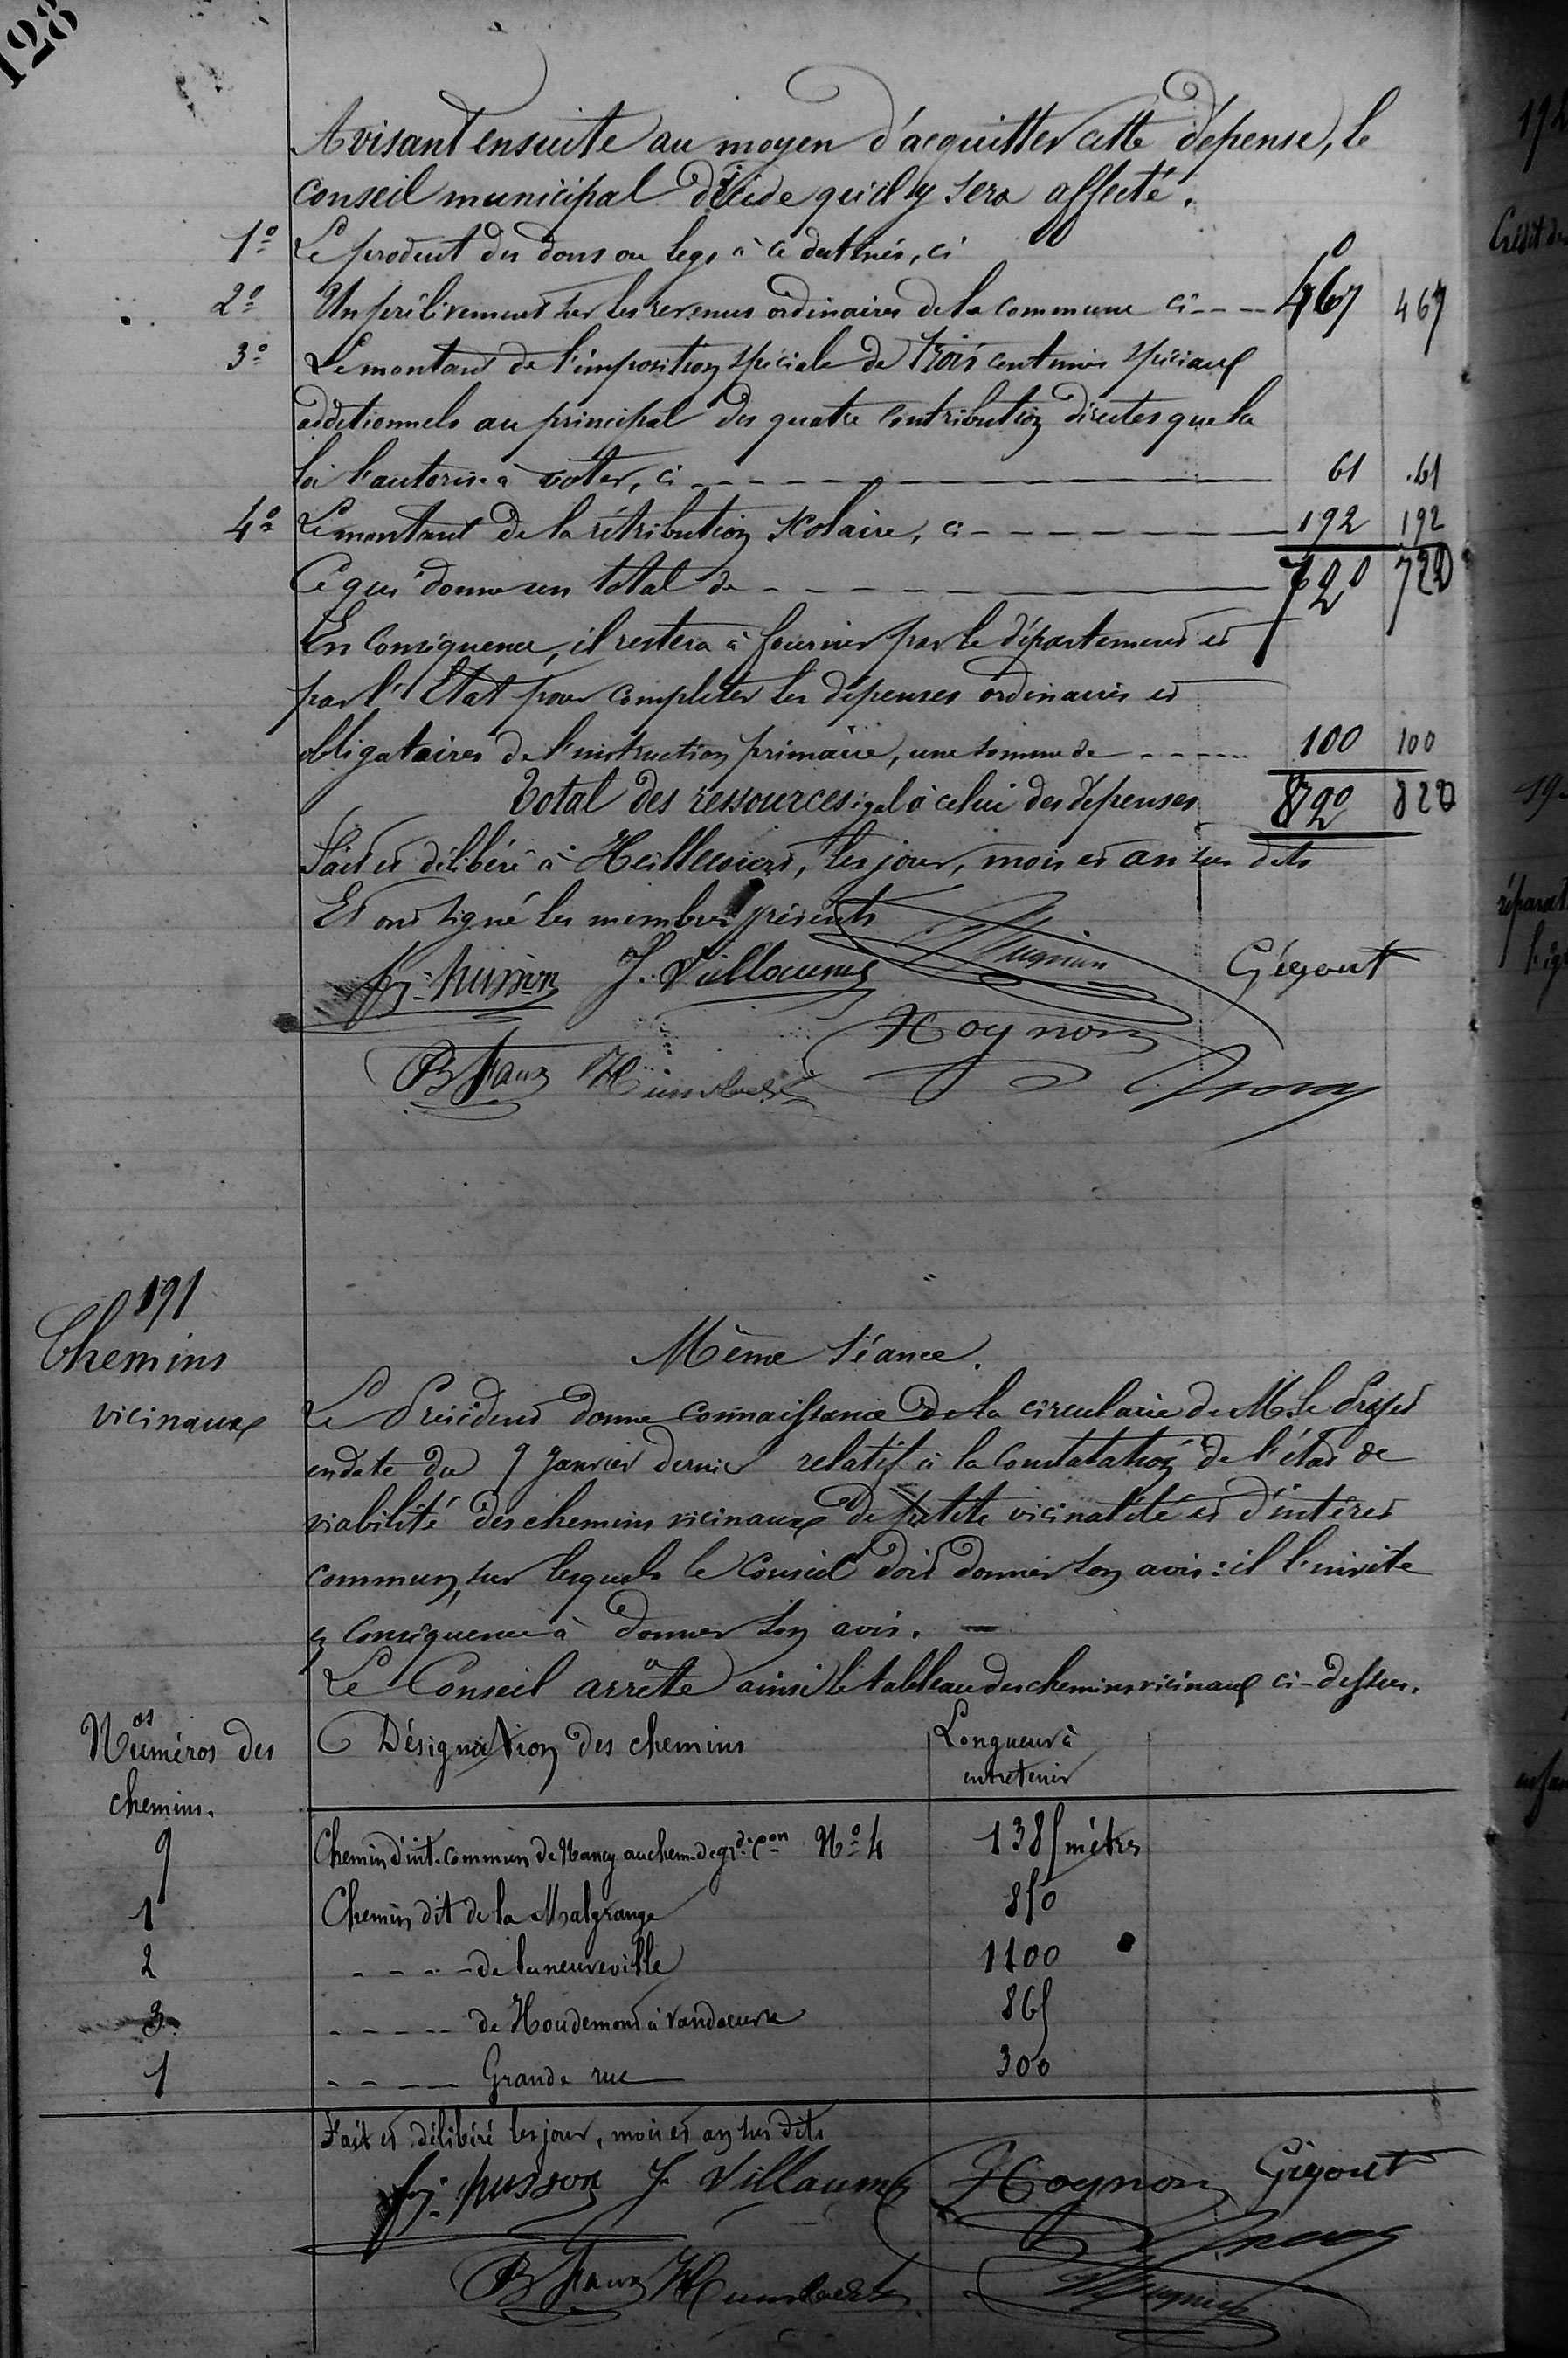 128
Avisant ensuite au moyen d'acquitter cette dépense, le
conseil municipal décide qu'il y sera affecté.
1º Le produit des dons ou legs à ce destinés, ci 0
2º Un prélèvement sur les revenus ordinaires de la commune ci ---- 467 467
3º Le montant de l'imposition spéciale de trois centimes spéciaux
additionnels au principal des quatre contribution directes que la
loi l'autorise à voter, ci 61 61
4º Le montant de la rétribution scolaire, ci 192 192
Ce qui donne un total de 720 720
En conséquence, il restera à fournir par le département et
par l'Etat pour completer les dépenses ordinaires et
obligatoires de l'instruction primaire, une somme de 100 100
Total des ressources égal à celui des dépenses 820 820
Fait et délibéré à Heillecourt, les jour, mois et an sus dits
Et ont signé les membres présents
husson J. Villaume Gégout
Hoynon
B faux Humbert
191
Chemins
vicinaux
Même séance.
Le Président donne connaissance de la circulaire de M. le Préfet
en date du 9 Janvier dernier relatif à la constatation de l'état de
viabilité des chemins vicinaux de petite vicinalité et d'intéret
commun, sur lesquels le Conseil doit donner son avis : il l'invite
en conséquence à donner son avis. —
Le Conseil arrête ainsi le tableau des chemins vicinaux ci-dessus.
Numéros des Désignation des chemins Longueur à
chemins. entretenir
9 Chemin d'int. commun de Nancy au chem. de gr.de c.on Nº 4 1385 mètres
1 Chemin dit de la Malgrange 850
2 ---- de laneuveville 1100
3 ----- de Houdemont à Vandoeuvre 865
1 ---- Grande rue 300
Fait et délibéré les jour, mois et an sus dits
husson J. Villaume Hoynon Gégout
B faux Humbert